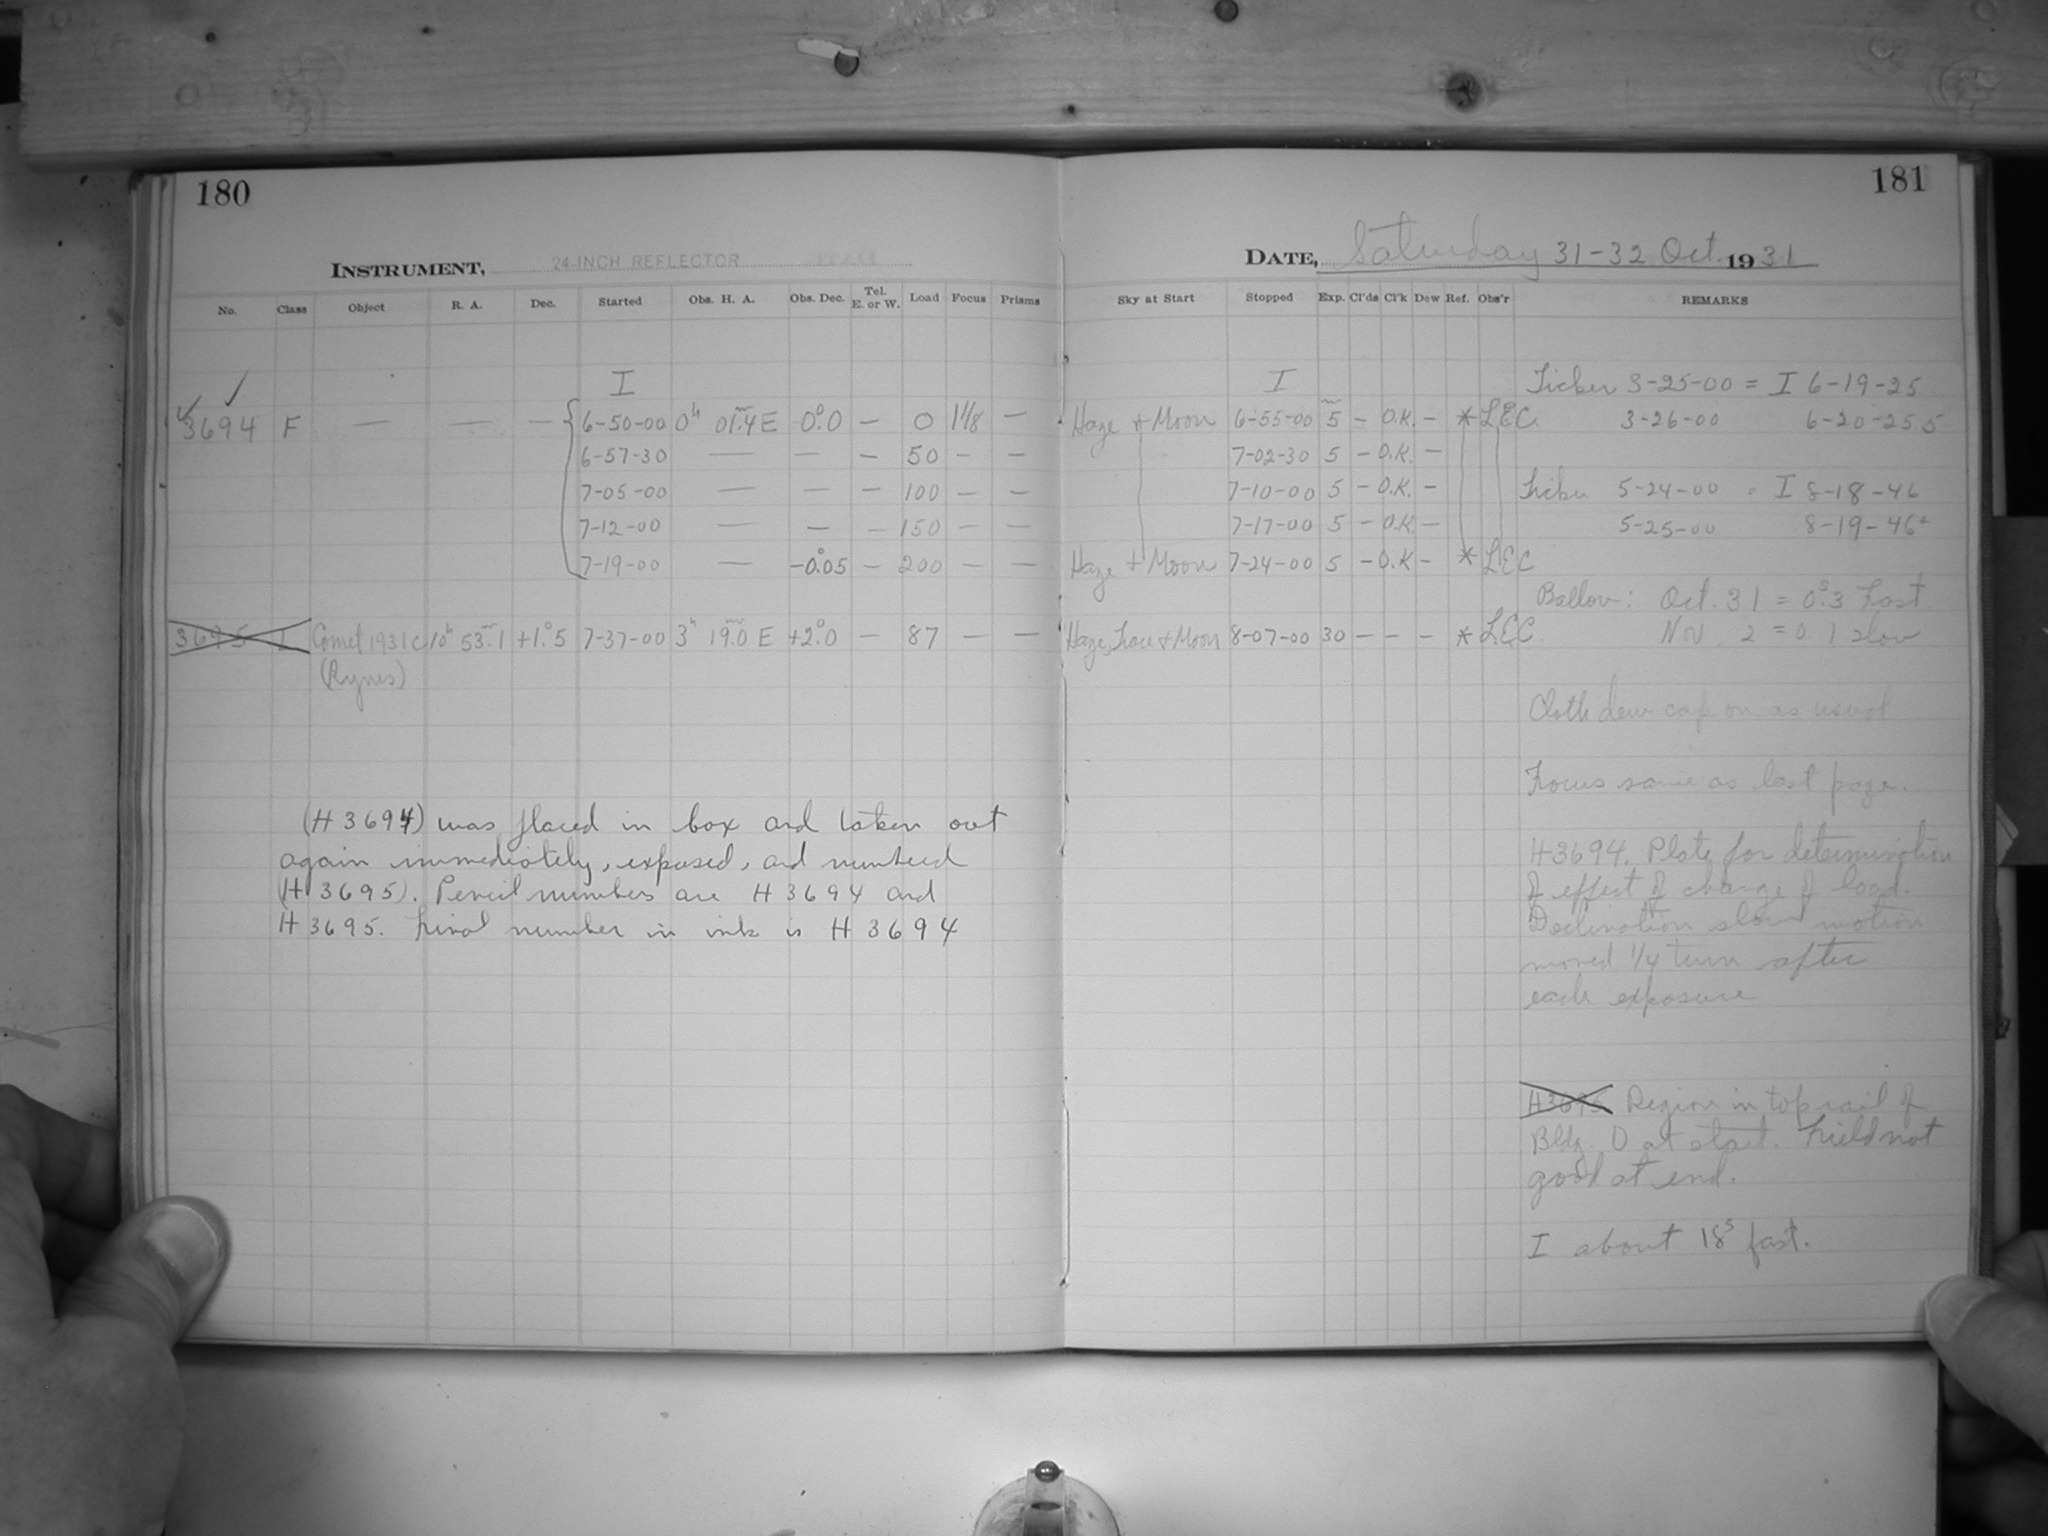 180
INSTRUMENT, 24-INCH REFLECTOR
No. Class Object R. A. Dec. Started Obs. H. A. Obs. Dec. Tel. E. or W. Load Focus Prisms
I
3694 F — — — 6-50-00 0h 01.m4 E 0.°0 — 0 1 1/8 —
6-57-30 — — — 50 — —
7-05-00 — — — 100 — —
7-12-00 — — — 150 — —
7-19-00 — -0.°05 — 200 — —
3695 I Comet 1931c 10h 53.m1 +1.°5 7-37-00 3h 19.m0 E +2.°0 — 87 — —
(Rynes)
(H 3694) was placed in box and taken out
again immediately, exposed, and numbered
(H 3695). Pencil numbers are H 3694 and
H 3695. Final number in ink is H 3694
181
DATE, Saturday 31-32 Oct. 1931
Sky at Start Stopped Exp. Cl'ds Cl'k Dew Ref. Obs'r REMARKS
I
Haze + Moon 6-55-00 5m – O.K. – * LEC
7-02-30 5 – O.K. –
7-10-00 5 – O.K. –
7-17-00 5 – O.K. –
Haze + Moon 7-24-00 5 – O.K – * LEC
Haze, Trace + Moon 8-07-00 30 – – – * LEC.
Ticker 3-25-00 = I 6-19-25
3-26-00 6-20-25.5
Ticker 5-24-00 = I 8-18-46
5-25-00 8-19-46+
Ballou: Oct. 31 = 0.s3 Fast.
Nov. 2 = 0.1 slow
Cloth dew cap on as usual
Focus same as last page.
H3694. Plate for determination
of effect of change of load.
Declination slow motion
moved 1/4 turn after
each exposure
H3695 Region in top rail of
Bldg. D at start. Field not
good at end.
I about 18s fast.